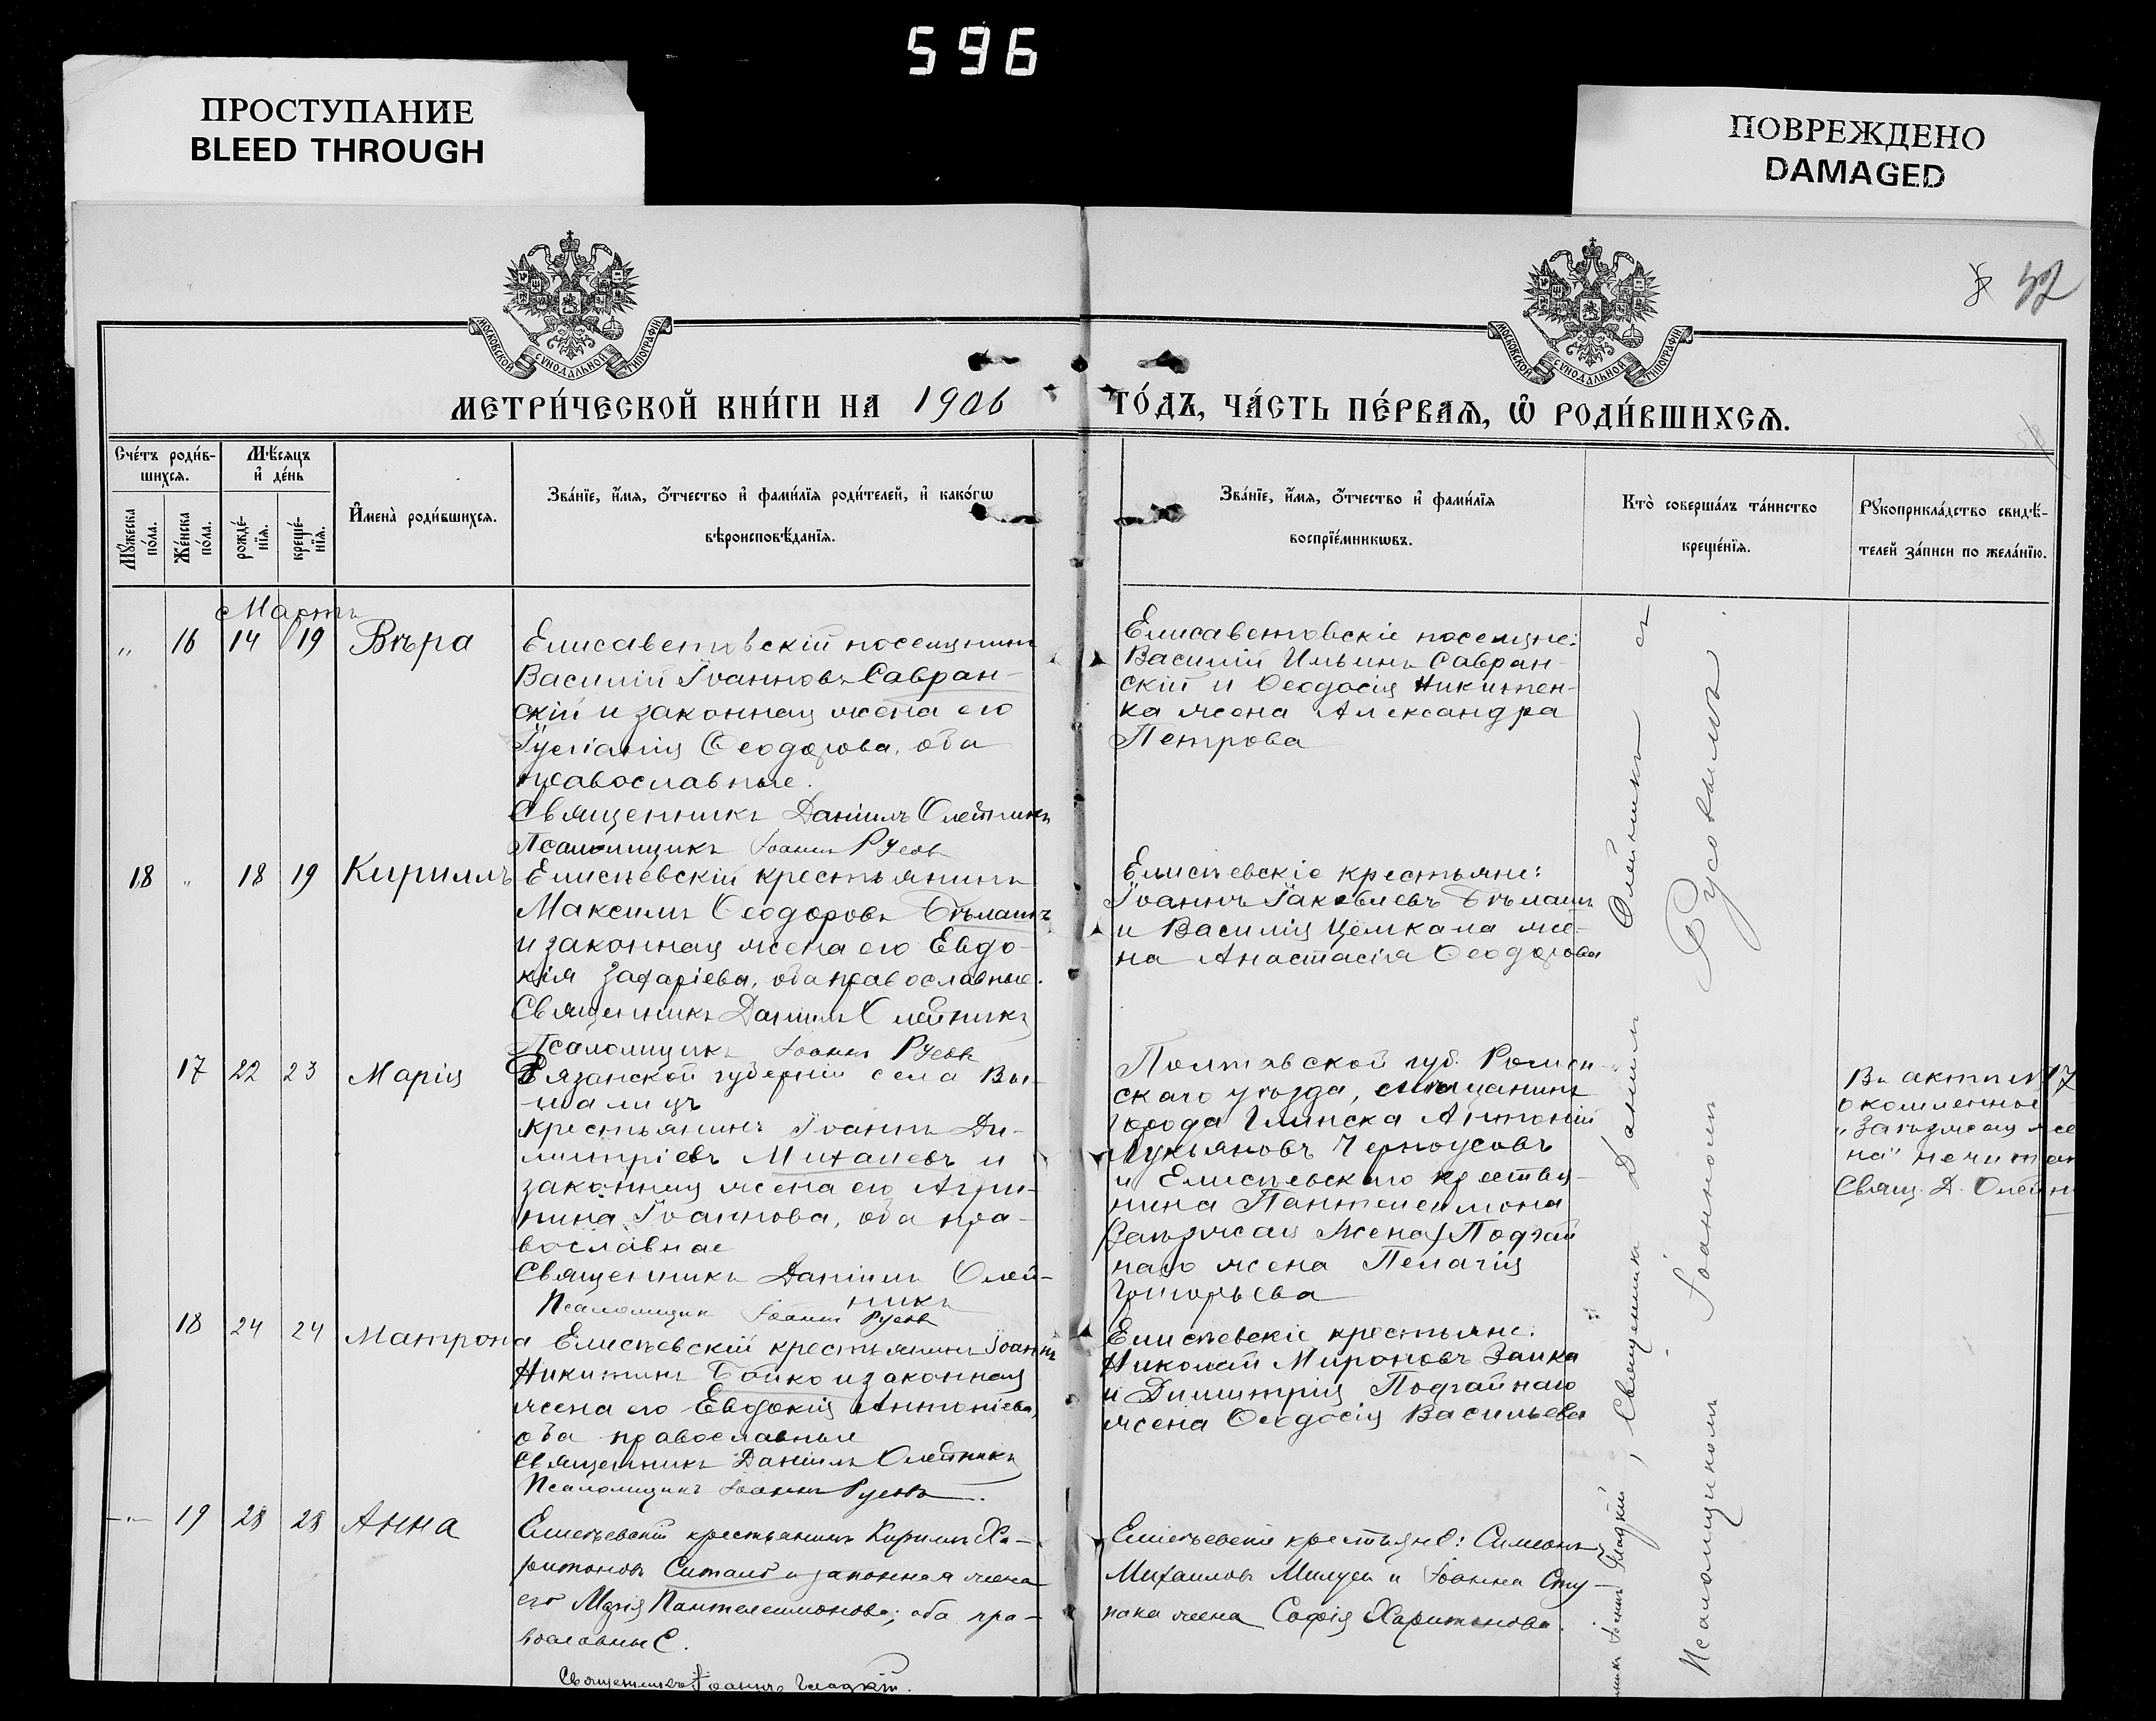 596
ПРОСТУПАНИЕ
BLEED THROUGH
ПОВРЕЖДЕНО
DAMAGED
МОСКОВСКОЙ СУНОДАЛЬНОЙ ТИПОГРАФІИ
МОСКОВСКОЙ СУНОДАЛЬНОЙ ТИПОГРАФІИ
52
МЕТРИ́ЧЕСКОЙ КНИ́ГИ НА 1906 ГО́ДЪ, ЧА́СТЬ ПЕ́РВАѦ, Ѡ РОДИ́ВШИХСѦ.
Сче́тъ роди́в-
шихсѧ.
Мѣ́сѧцъ
и де́нь
Мꙋ́жеска
по́ла.
Же́нска
по́ла.
рожде́-
нїѧ.
креще́-
нїѧ.
Имена̀ роди́вшихсѧ.
Зва́нїе, и́мѧ, о́тчество и фами́лїѧ роди́телей, и како́гѡ
вѣроисповѣ́данїѧ.
Зва́нїе, и́мѧ, о́тчество и фами́лїѧ
воспрїе́мникѡвъ.
Кто̀ соверша́лъ та́инство
креще́нїѧ.
Рꙋкоприкла́дство свидѣ́-
телей за́писи по жела́нїю.
Мартъ
„ 16 14 19 Вѣра
Елисаветовскій поселянинъ
Василій Іоанновъ Савран-
скій и законная жена его
Іуліанія Ѳеодорова, оба
православные.
Священникъ Даніилъ Олейникъ
Псаломщикъ Іоаннъ Русовъ
Елисаветовскіе поселяне:
Василій Ильинъ Савран-
скій и Ѳеодосія Никитен-
ка жена Александра
Петрова
18 „ 18 19 Кириллъ
Елисѣевскій крестьянинъ
Максимъ Ѳеодоровъ Бѣлашъ
и законная жена его Евдо-
кія Захаріева, оба православные.
Священникъ Даніилъ Олейникъ
Псаломщикъ Іоаннъ Русовъ
Елисѣевскіе крестьяне:
Іоаннъ Іаковлевъ Бѣлашъ
и Василія Цемкала же-
на Анастасія Ѳеодорова
17 22 23 Марія
Рязанской губерніи села Вы-
крестьянинъ Іоаннъ Ди-
митріевъ Михалевъ и
законная жена его Агри-
пина Іоаннова, оба пра-
вославные
Священникъ Даніилъ Олей-
никъ
Псаломщик Іоаннъ Русовъ
Полтавской губ. Ромен-
скаго уѣзда, мѣщанинъ
города Глинска Антоній
Лукьяновъ Черноусовъ
и Елисѣевскаго крестья-
нина Пантелеимона
Заѣзжая жена) Подгай
наго жена Пелагія
Григорьева
Въ актѣ № 17
„Заѣзжая же
на" не читат
Свящ. Д. Олейн
18 24 24 Матрона
Елисѣевскій крестьянинъ Іоаннъ
Никитинъ Бойко и законная
жена его Евдокія Антоніева,
оба православные
Священникъ Даніилъ Олейникъ
Псаломщикъ Іоаннъ Русовъ
Елисѣевскіе крестьяне:
Николай Мироновъ Заика
и Димитрія Подгайнаго
жена Ѳеодосія Васильева
— „ — 19 28 28 Анна
Елисѣевскій крестьянинъ Кирилъ Ха-
ритоновъ Ситало и законная жена
его Марія Пантелеимонова; оба пра-
вославные.
Священникъ Іоаннъ Гладкій.
Елисѣевскіе крестьяне: Симеонъ
Михаиловъ Милуси и Іоанна Сту-
пака жена Софія Харитонова.
Іоаннъ Гладкій, Священникъ Даніилъ Олейникъ съ
Псаломщикомъ Іоанномъ Русовымъ.